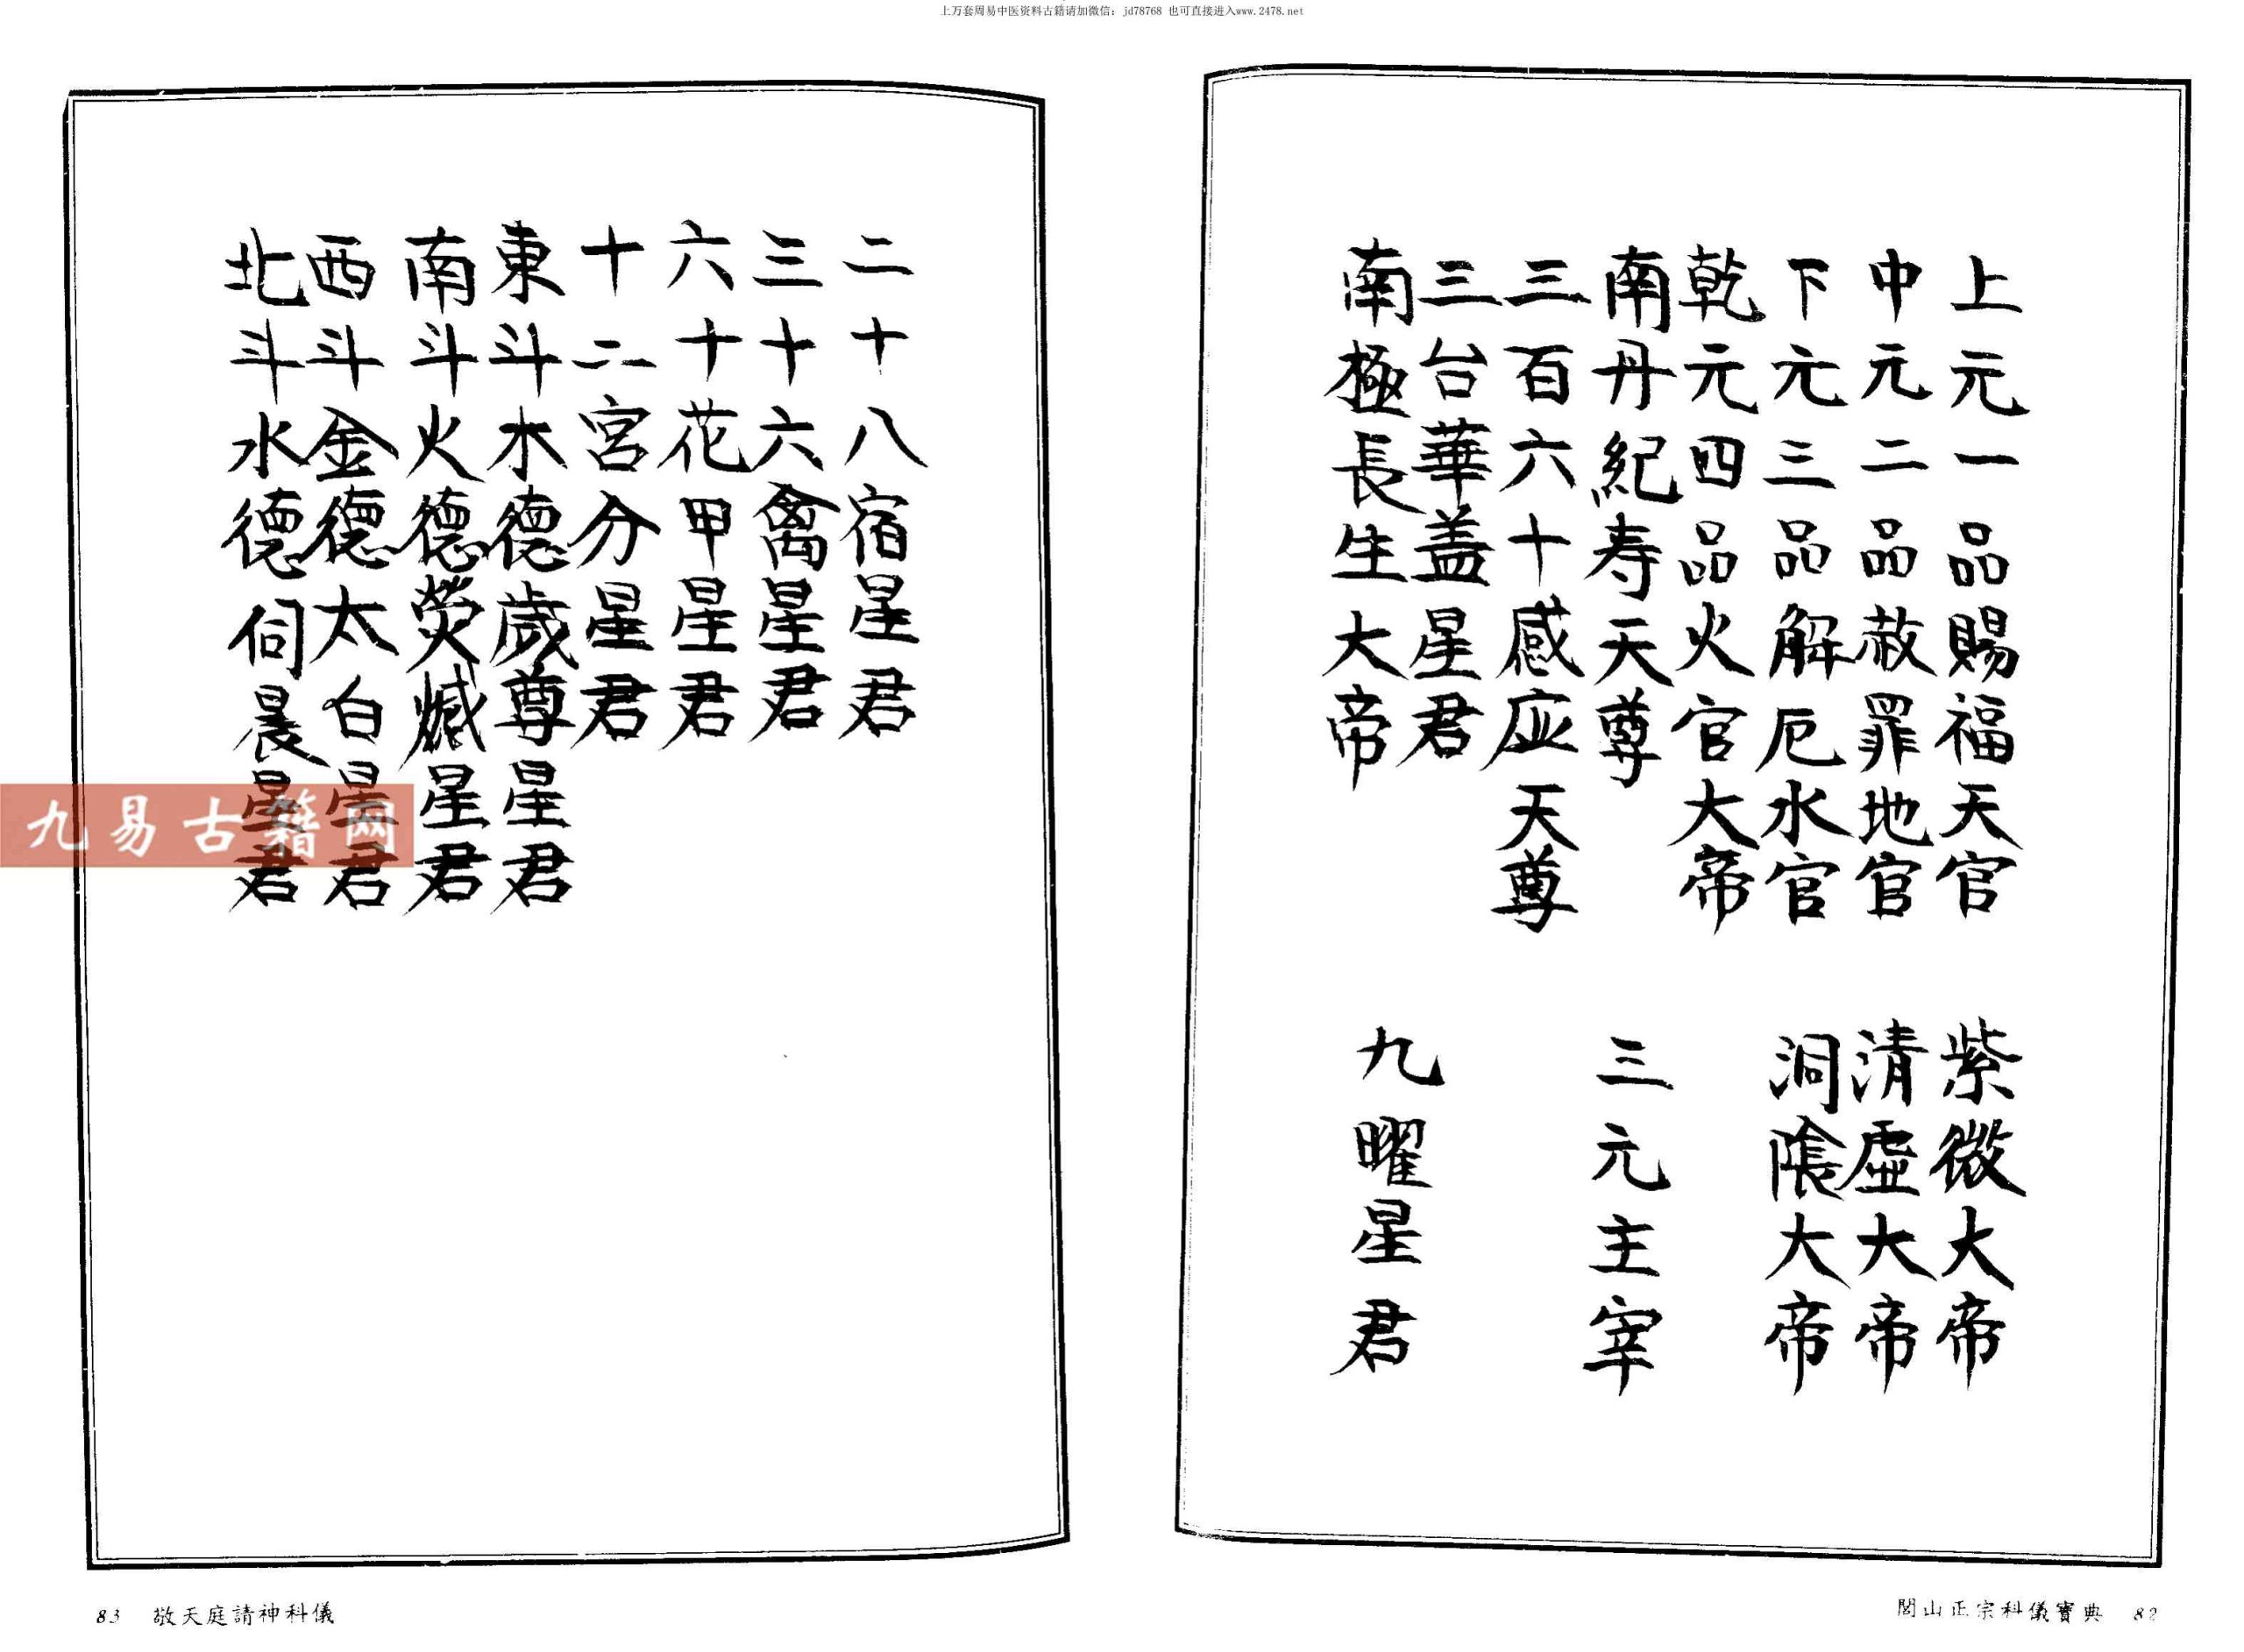 上万套周易中医资料古籍请加微信：jd78768 也可直接进入www.2478.net
上元一品賜福天官 紫微大帝
中元二品赦罪地官 清虛大帝
下元三品解厄水官 洞陰大帝
乾元四品火官大帝
南丹紀寿天尊 三元主宰
三百六十感应天尊
三台華盖星君
南極長生大帝 九曜星君
閭山正宗科儀寶典 82
二十八宿星君
三十六禽星君
六十花甲星君
十二宮分星君
東斗木德歲尊星君
南斗火德熒惑星君
西斗金德太白星君
北斗水德伺晨星君
83 敬天庭請神科儀
九易古籍网